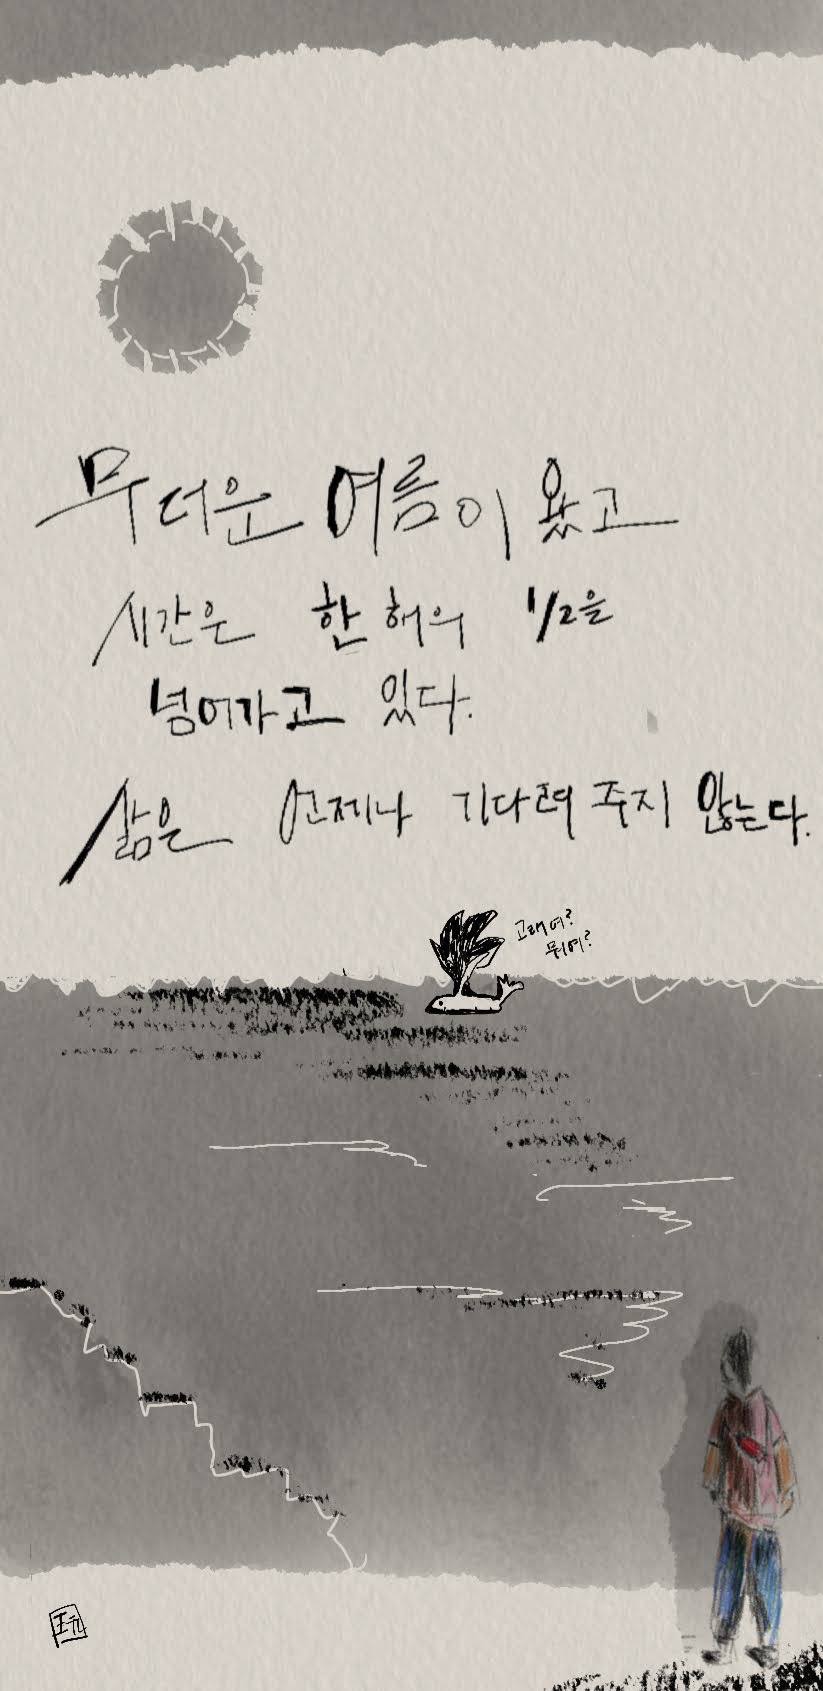 무더운 여름이 왔고
시간은 한 해의 1/2을
넘어가고 있다.
삶은 언제나 기다려 주지 않는다.
고래여?
뭐여?